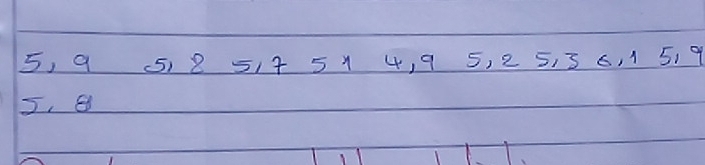 5,9 5,8 5,7 5 1 4,9 5,2 5,3 6,1 5,9
5,8